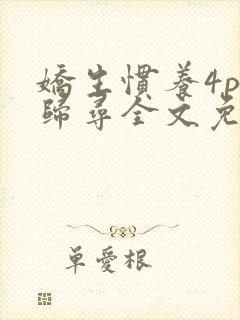 嬌生慣養4p
歸尋全文免
單愛根